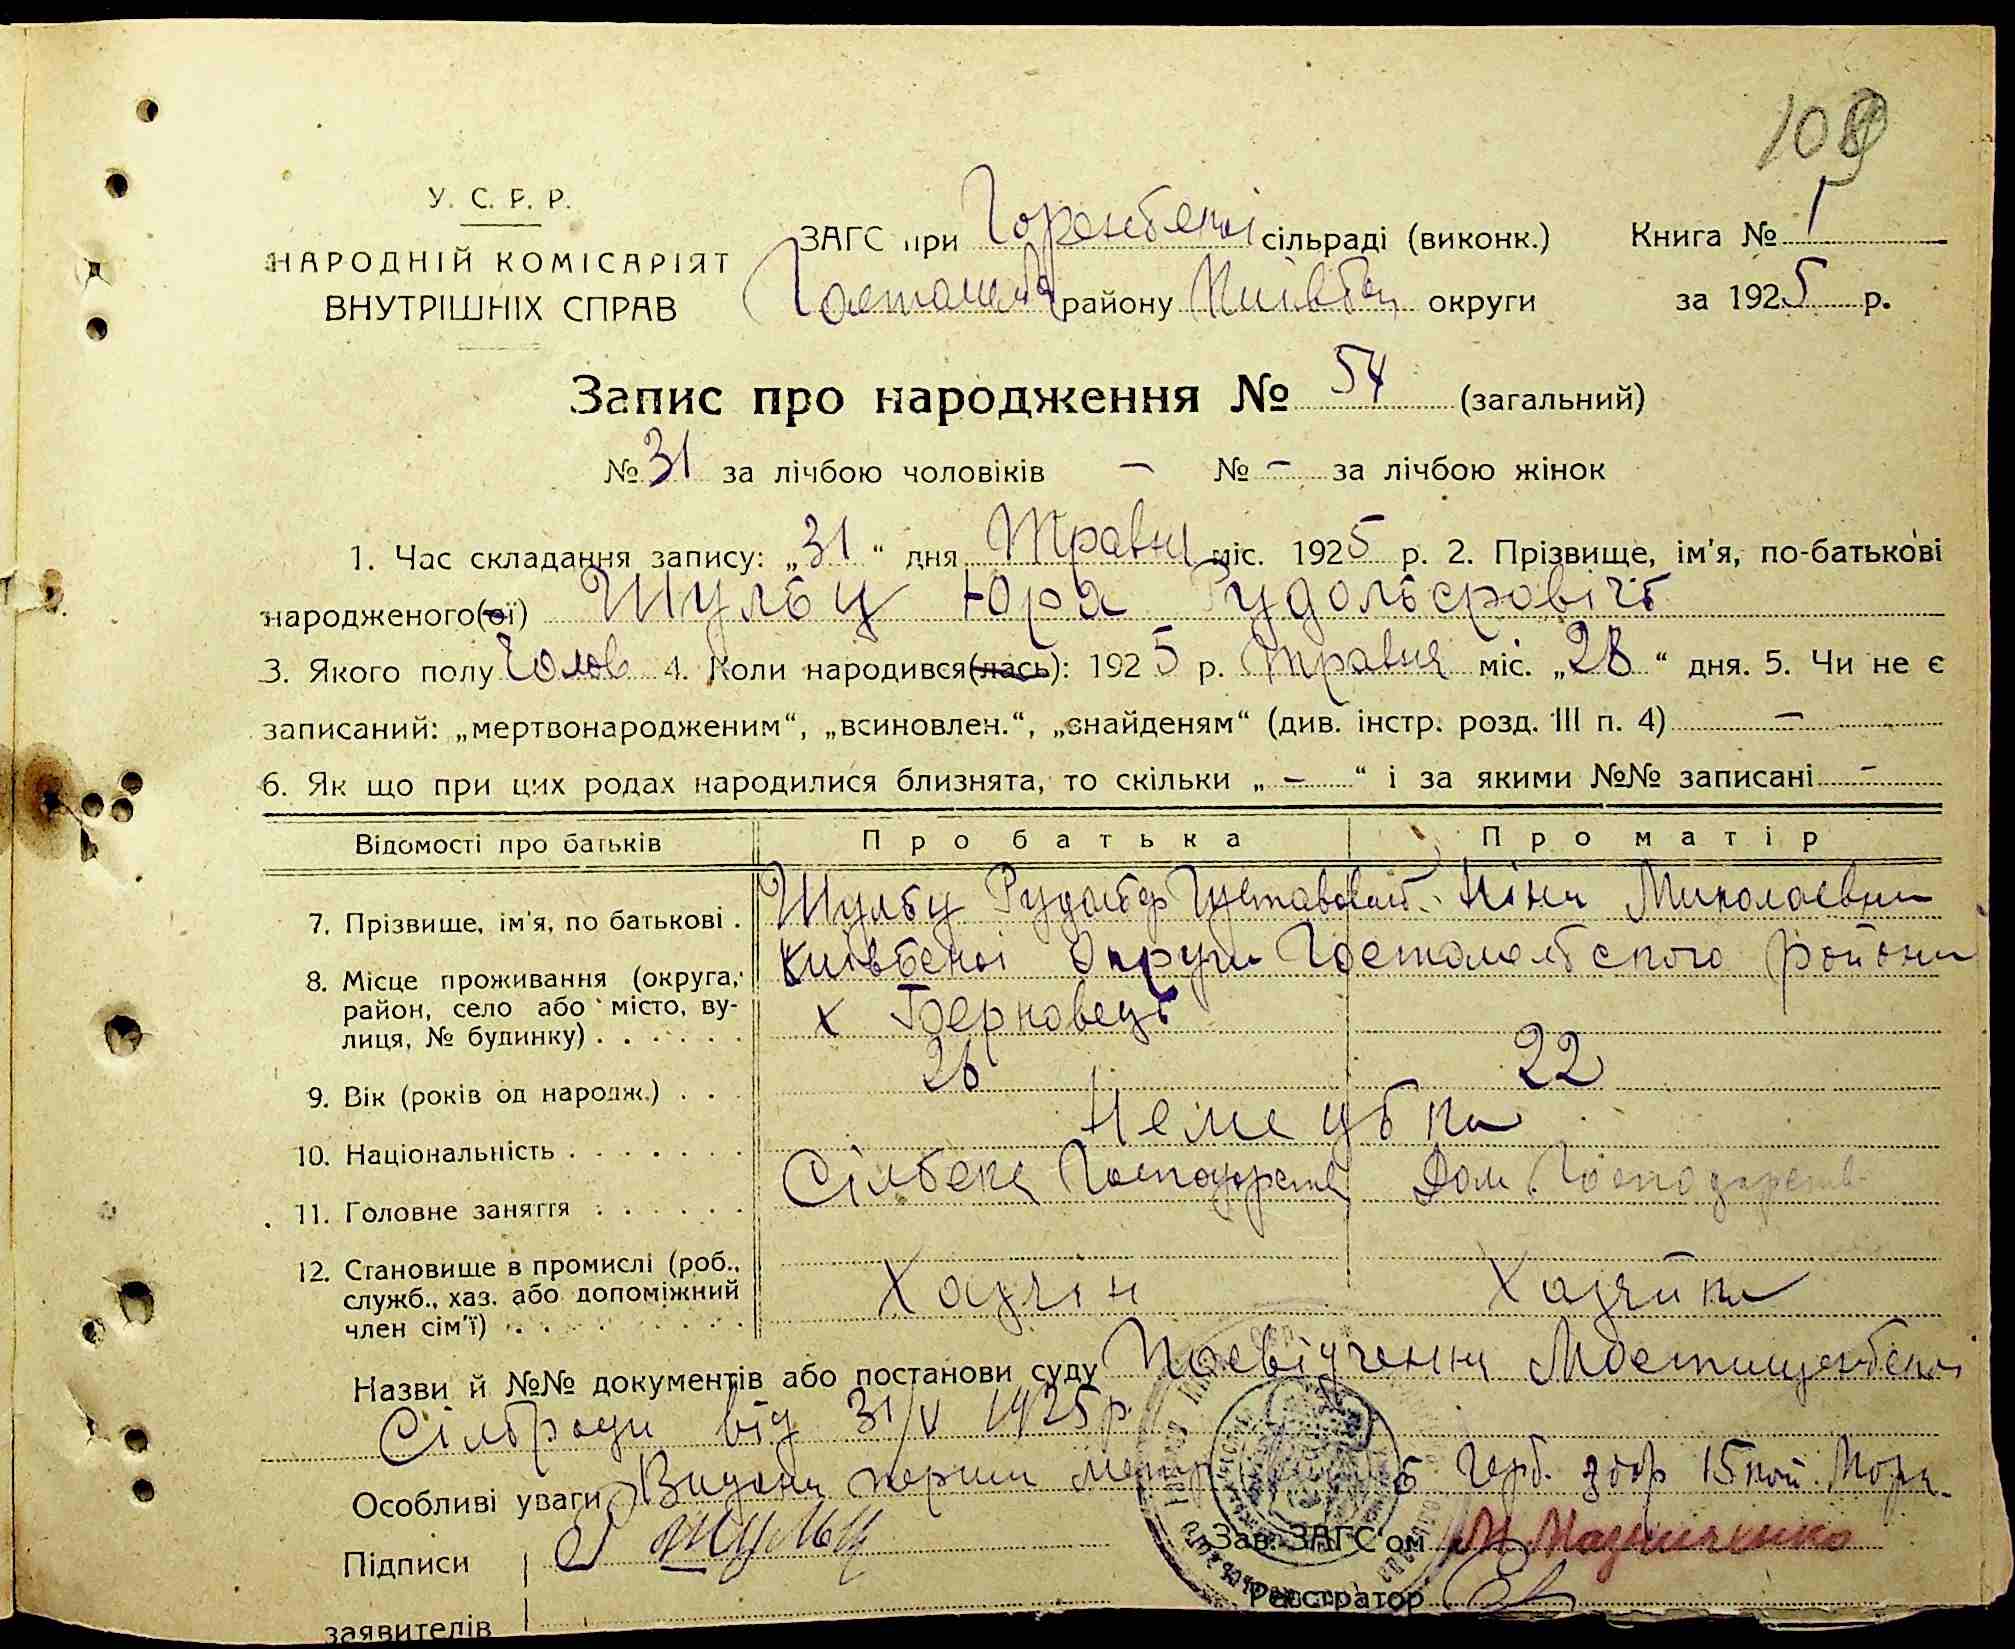 109
У. С. Р. Р.
НАРОДНІЙ КОМІСАРІЯТ
ВНУТРІШНІХ СПРАВ
ЗАГС при Горенській сільраді (виконк.) Книга № 1
району округи за 1925 р.
Запис про народження № 54 (загальний)
№ 31 за лічбою чоловіків — № — за лічбою жінок
1. Час складання запису: „31“ дня Травня міс. 1925 р. 2. Прізвище, ім'я, по-батькові
народженого(ої) Шульц Юра Рудольфовічь
3. Якого полу Голов 4. Коли народився(лась): 1925 р. травня міс. „28“ дня. 5. Чи не є
записаний: „мертвонародженим“, „всиновлен.“, „знайденям“ (див. інстр. розд. III п. 4) —
6. Як що при цих родах народилися близнята, то скільки „—“ і за якими №№ записані —
Відомості про батьків Про батька Про матір
7. Прізвище, ім'я, по батькові . Шульц Рудольф Ніна Миколаевна
8. Місце проживання (округа, район, село або місто, вулиця, № будинку) Округи района
х
9. Вік (років од народж.) . . . 26 22
10. Національність Немецька
11. Головне заняття Дом Господарств
12. Становище в промислі (роб., служб., хаз. або допоміжний член сім'ї) Хазяїн Хазяйка
Назви й №№ документів або постанови суду Посвідчення
Сільради від 31/V 1925 р.
Особливі уваги Видана перша Герб. збор 15 коп.
Підписи Р Шульц Зав. ЗАГС'ом
Реєстратор
заявителів